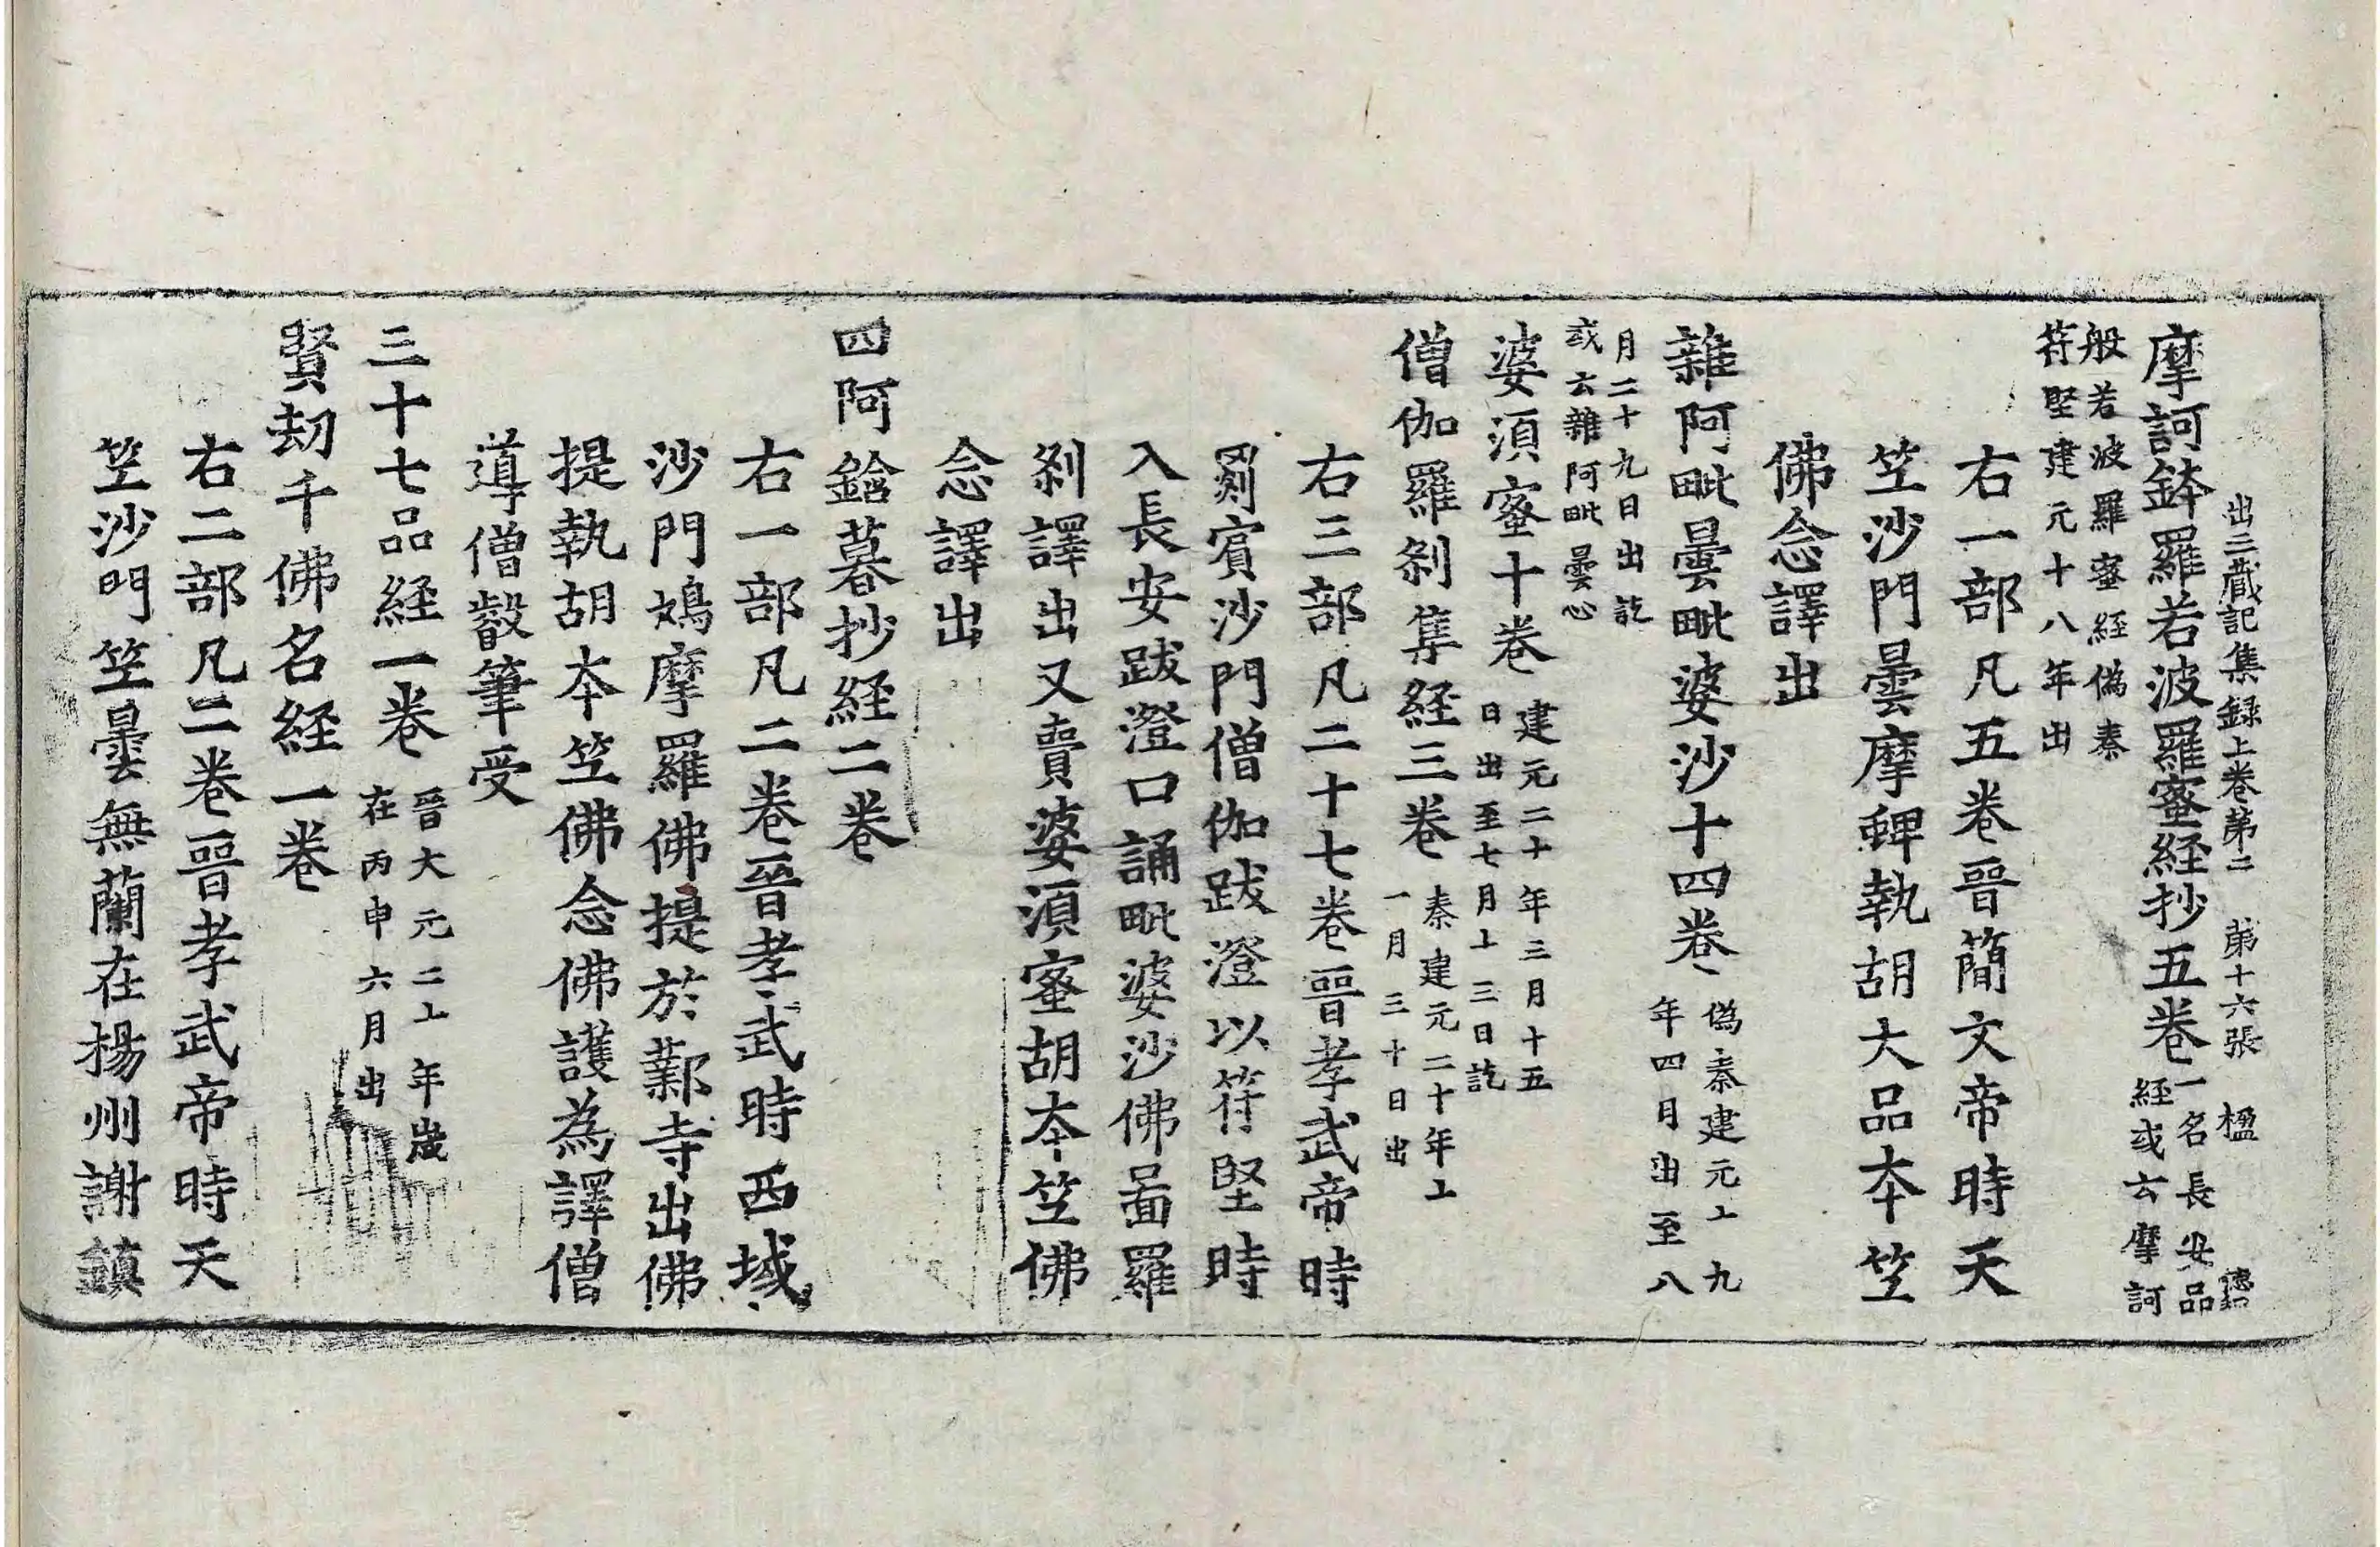 出三蔵記集録上巻苐二　苐十六張　楹
摩訶鉢羅若波羅蜜経抄五巻一名長安品
経或云摩訶
般若波羅蜜経偽秦
符堅建元十八年出
右一部凡五巻晉簡文帝時天
竺沙門曇摩蜱執胡大品本竺
佛念譯出
雜阿毗曇毗婆沙十四巻偽秦建元十九
年四月出至八
月二十九日出訖
或云雜阿毗曇心
婆須蜜十巻建元二十年三月十五
日出至七月十三日訖
僧伽羅剎集経三巻秦建元二十年十
一月三十日出
右三部凡二十七巻晉孝武帝時
罽賓沙門僧伽跋澄以符堅時
入長安跋澄口誦毗婆沙佛啚羅
剎譯出又賷婆須蜜胡本竺佛
念譯出
四阿鋡暮抄経二巻
右一部凡二巻晉孝武時西域
沙門鳩摩羅佛提於鄴寺出佛
提執胡本竺佛念佛護為譯僧
導僧叡筆受
三十七品経一巻晉大元二十年歲
在丙申六月出
賢劫千佛名経一巻
右二部凡二巻晉孝武帝時天
竺沙門竺曇無蘭在楊州謝鎮